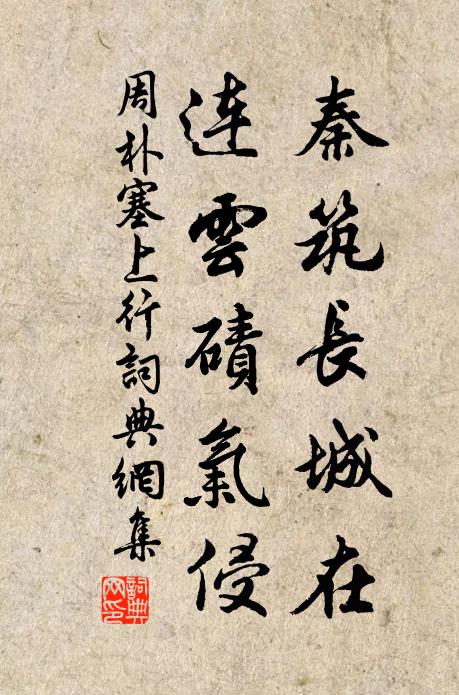 秦筑長城在
連雲磧氣侵
周朴塞上行詞典網集
詞典
网印